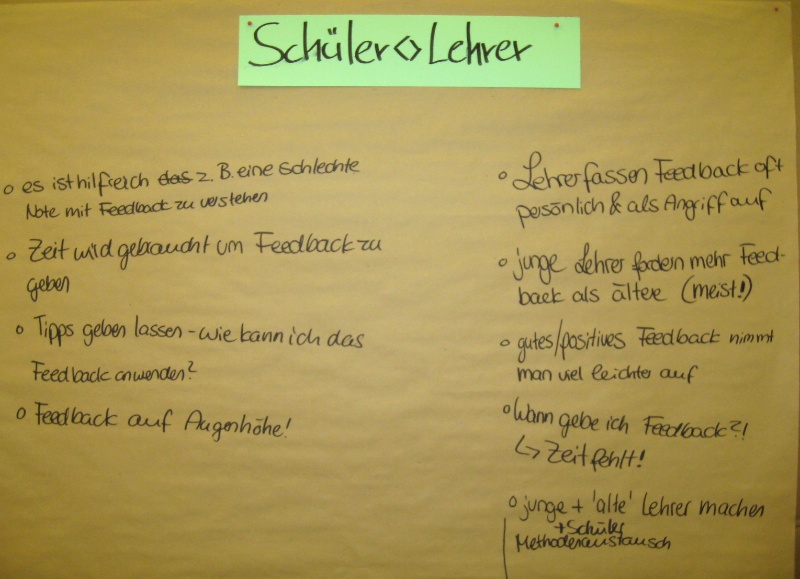 Schüler<>Lehrer
o es ist hilfreich das z. B. eine schlechte
Note mit Feedback zu verstehen
o Zeit wird gebraucht um Feedback zu
geben
o Tipps geben lassen - wie kann ich das
Feedback anwenden?
o Feedback auf Augenhöhe!
o Lehrer fassen Feedback oft
persönlich & als Angriff auf
o junge Lehrer fordern mehr Feed-
back als ältere (meist!)
o gutes/positives Feedback nimmt
man viel leichter auf
o Wann gebe ich Feedback?!
↳ Zeit fehlt!
o junge + 'alte' Lehrer machen
+ Schüler
Methodenaustausch